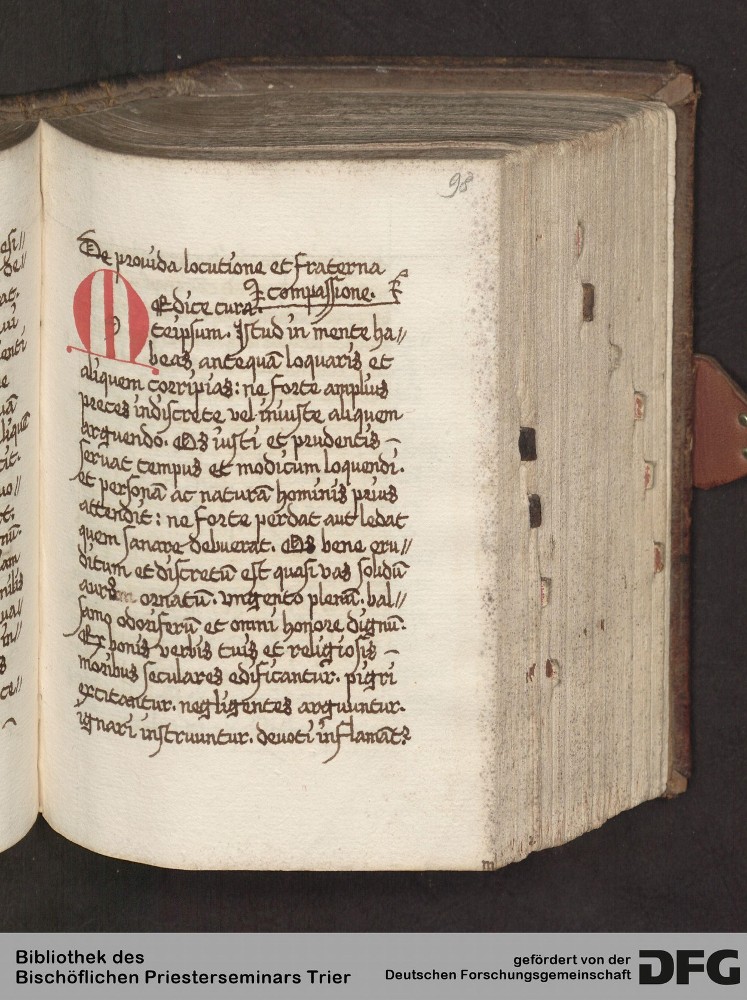 98
De prouida locutione et fraterna
compassione.
MEdice cura
teipsum. Istud in mente ha//
beas antequā loquaris et
aliquem corripias: ne forte amplius
pecces indiscrete vel iniuste aliquem
arguendo. Os iusti et prudentis –
seruat tempus et modicum loquendi.
et personā ac naturā hominis prius
attendit: ne forte perdat aut ledat
quem sanare debuerat. Os bene eru//
ditum et discretū est quasi vas solidū
ornatū. vngento plenū. bal//
samo odoriferū et omni honore dignū.
Ex bonis verbis tuis et religiosis –
moribus seculares edificantur. pigri
excitantur. negligentes arguuntur.
ignari instruuntur. deuoti inflamāt
Bibliothek des
Bischöflichen Priesterseminars Trier
gefördert von der
Deutschen Forschungsgemeinschaft
DFG